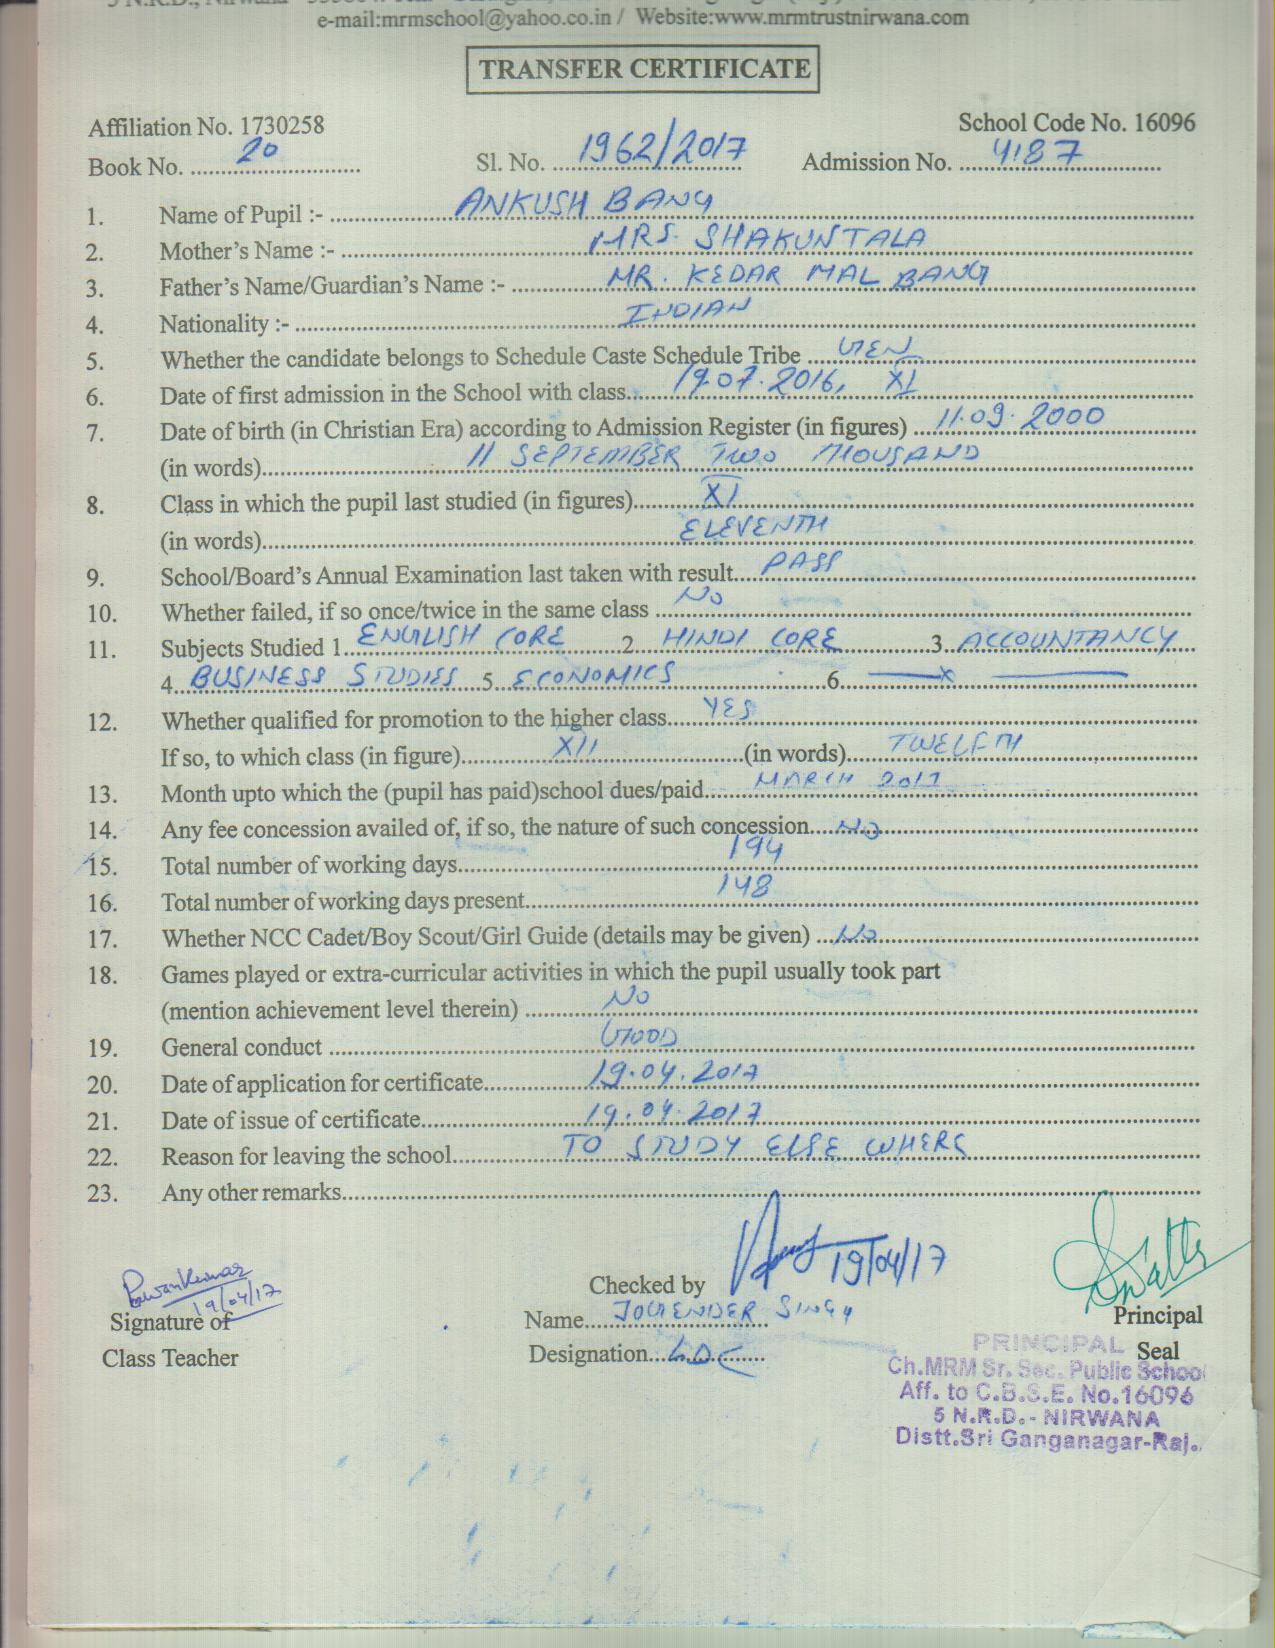 e-mail:mrmschool@yahoo.co.in / Website:www.mrmtrustnirwana.com
TRANSFER CERTIFICATE
Affiliation No. 1730258 School Code No. 16096
Book No. 20 Sl. No. 1962/2017 Admission No. 4187
1. Name of Pupil :- ANKUSH BANG
2. Mother's Name :- MRS. SHAKUNTALA
3. Father's Name/Guardian's Name :- MR. KEDAR MAL BANG
4. Nationality :- INDIAN
5. Whether the candidate belongs to Schedule Caste Schedule Tribe GEN
6. Date of first admission in the School with class 19.07.2016, XI
7. Date of birth (in Christian Era) according to Admission Register (in figures) 11.09.2000
(in words) 11 SEPTEMBER TWO THOUSAND
8. Class in which the pupil last studied (in figures) XI
(in words) ELEVENTH
9. School/Board's Annual Examination last taken with result PASS
10. Whether failed, if so once/twice in the same class NO
11. Subjects Studied 1 ENGLISH CORE 2 HINDI CORE 3 ACCOUNTANCY
4 BUSINESS STUDIES 5 ECONOMICS 6 —x—
12. Whether qualified for promotion to the higher class YES
If so, to which class (in figure) XII (in words) TWELFTH
13. Month upto which the (pupil has paid)school dues/paid MARCH 2017
14. Any fee concession availed of, if so, the nature of such concession NO
15. Total number of working days 194
16. Total number of working days present 148
17. Whether NCC Cadet/Boy Scout/Girl Guide (details may be given) NO
18. Games played or extra-curricular activities in which the pupil usually took part
(mention achievement level therein) NO
19. General conduct GOOD
20. Date of application for certificate 19.04.2017
21. Date of issue of certificate 19.04.2017
22. Reason for leaving the school TO STUDY ELSE WHERE
23. Any other remarks
Pawan Kumar 19/04/17
Signature of
Class Teacher
Checked by 19/04/17
Name JOGENDER SINGH
Designation LDC
Principal
Seal
PRINCIPAL
Ch.MRM Sr. Sec. Public School
Aff. to C.B.S.E. No.16096
5 N.R.D.- NIRWANA
Distt.Sri Ganganagar-Raj.